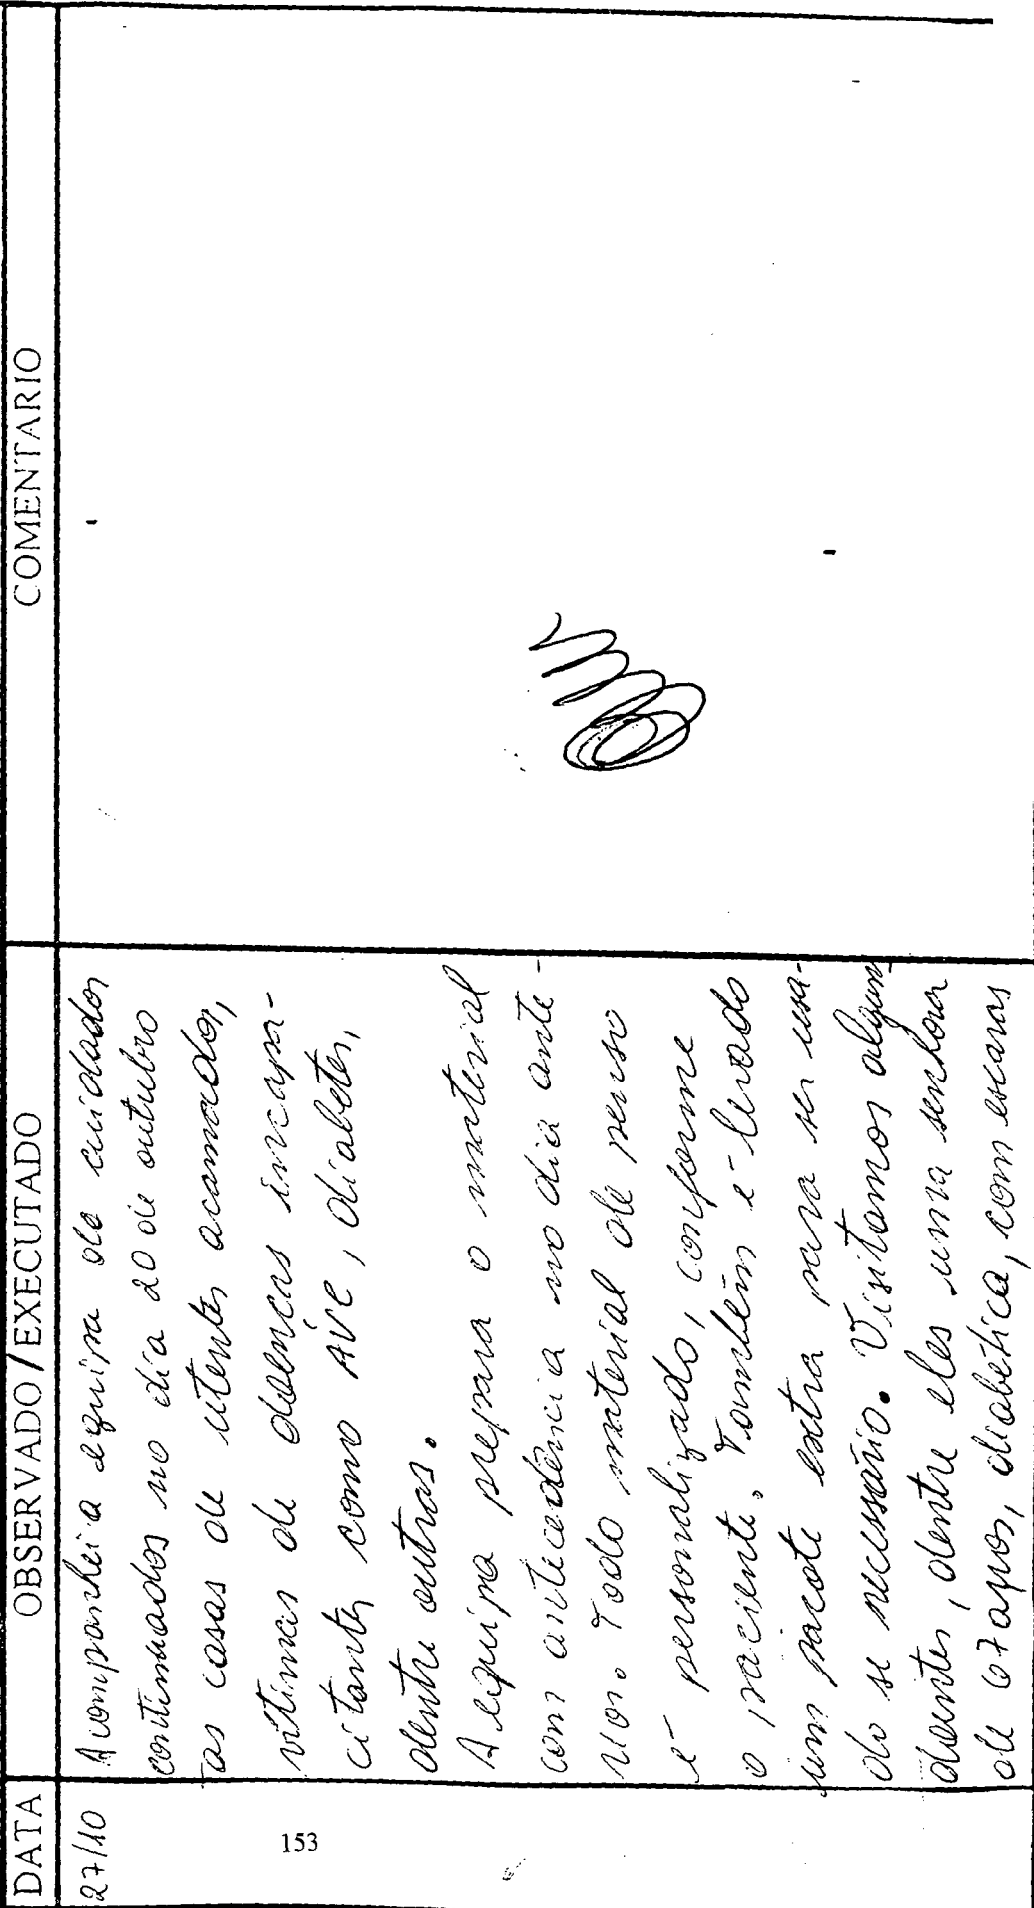 DATA
OBSERVADO/EXECUTADO
COMENTARIO
27/10
Acompanhei a equipa de cuidados
continuados no dia 20 de outubro
as casas de utentes acamados,
vítimas de doenças incapa-
citantes como AVC, diabetes,
dentre outras.
A equipa prepara o material
com antecedência no dia ante-
rior. Todo material de penso
é personalizado, conforme
o paciente. Também é levado
um pacote extra para ser usa-
do se necessário. Visitamos alguns
doentes, dentre eles uma senhora
de 67 anos, diabética, com escaras
153